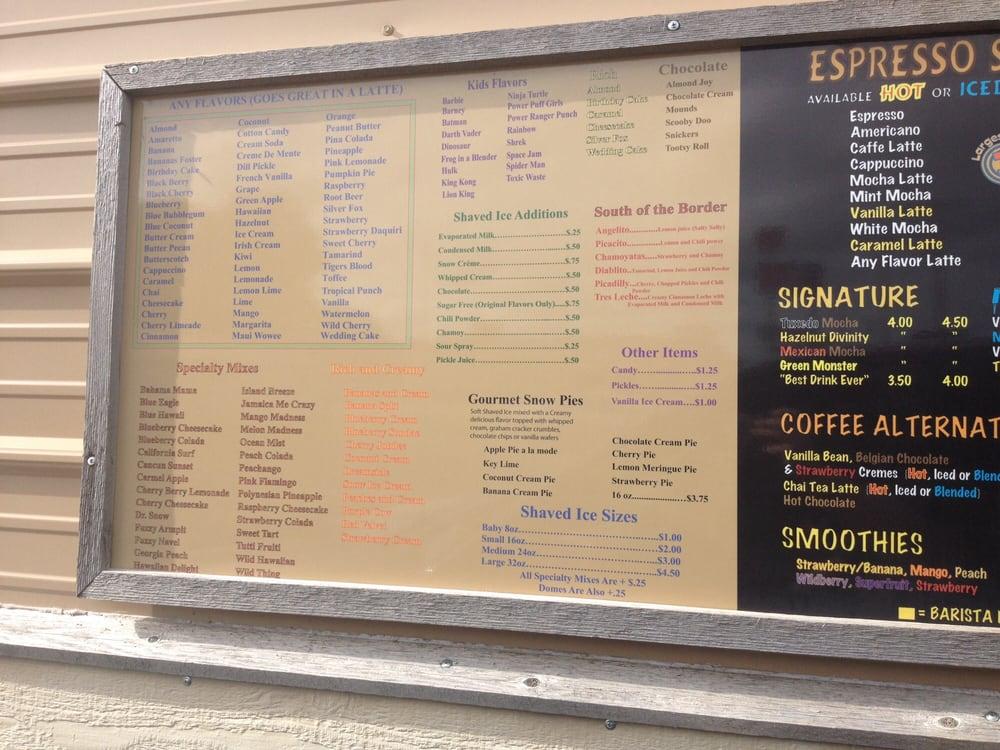 ANY FLAVORS (GOES GREAT IN A LATTE)
Almond
Amaretto
Banana
Bananas Foster
Birthday Cake
Black Berry
Black Cherry
Blueberry
Blue Bubblegum
Blue Coconut
Butter Cream
Butter Pecan
Butterscotch
Cappuccino
Caramel
Chai
Cheesecake
Cherry
Cherry Limeade
Cinnamon
Coconut
Cotton Candy
Cream Soda
Creme De Mente
Dill Pickle
French Vanilla
Grape
Green Apple
Hawaiian
Hazelnut
Ice Cream
Irish Cream
Kiwi
Lemon
Lemonade
Lemon Lime
Lime
Mango
Margarita
Maui Wowee
Orange
Peanut Butter
Pina Colada
Pineapple
Pink Lemonade
Pumpkin Pie
Raspberry
Root Beer
Silver Fox
Strawberry
Strawberry Daquiri
Sweet Cherry
Tamarind
Tigers Blood
Toffee
Tropical Punch
Vanilla
Watermelon
Wild Cherry
Wedding Cake
Specialty Mixes
Bahama Mama
Blue Eagle
Blue Hawaii
Blueberry Cheesecake
Blueberry Colada
California Surf
Cancun Sunset
Carmel Apple
Cherry Berry Lemonade
Cherry Cheesecake
Dr. Snow
Fuzzy Armpit
Fuzzy Navel
Georgia Peach
Hawaiian Delight
Island Breeze
Jamaica Me Crazy
Mango Madness
Melon Madness
Ocean Mist
Peach Colada
Peachango
Pink Flamingo
Polynesian Pineapple
Raspberry Cheesecake
Strawberry Colada
Sweet Tart
Tutti Fruiti
Wild Hawaiian
Wild Thing
Rich and Creamy
Bananas and Cream
Banana Split
Blueberry Cream
Blueberry Sundae
Cherry Jubilee
Coconut Cream
Dreamsicle
Snow Ice Cream
Peaches and Cream
Purple Cow
Red Velvet
Strawberry Cream
Kids Flavors
Barbie
Barney
Batman
Darth Vader
Dinosaur
Frog in a Blender
Hulk
King Kong
Lion King
Ninja Turtle
Power Puff Girls
Power Ranger Punch
Rainbow
Shrek
Space Jam
Spider Man
Toxic Waste
Rich
Almond
Birthday Cake
Caramel
Cheesecake
Silver Fox
Wedding Cake
Chocolate
Almond Joy
Chocolate Cream
Mounds
Scooby Doo
Snickers
Tootsy Roll
Shaved Ice Additions
Evaporated Milk...$.25
Condensed Milk...$.50
Snow Crème...$.75
Whipped Cream...$.50
Chocolate...$.50
Sugar Free (Original Flavors Only)....$.75
Chili Powder...$.50
Chamoy...$.50
Sour Spray...$.25
Pickle Juice...$.50
South of the Border
Angelito...Lemon juice (Salty Salty)
Picacito...Lemon and Chili power
Chamoyatas....Strawberry and Chamoy
Diablito...Tamarind, Lemon Juice and Chili Powder
Picadilly...Cherry, Chopped Pickles and Chili
Powder
Tres Leche...Creamy Cinnamon Leche with
Evaporated Milk and Condensed Milk
Other Items
Candy...$1.25
Pickles...$1.25
Vanilla Ice Cream....$1.00
Gourmet Snow Pies
Soft Shaved Ice mixed with a Creamy
delicious flavor topped with whipped
cream, graham cracker crumbs,
chocolate chips or vanilla wafers
Apple Pie a la mode
Key Lime
Coconut Cream Pie
Banana Cream Pie
Chocolate Cream Pie
Cherry Pie
Lemon Meringue Pie
Strawberry Pie
16 oz...$3.75
Shaved Ice Sizes
Baby 8oz...$1.00
Small 16oz...$2.00
Medium 24oz...$3.00
Large 32oz...$4.50
All Specialty Mixes Are + $.25
Domes Are Also +.25
ESPRESSO S
AVAILABLE HOT OR ICED
Espresso
Americano
Caffe Latte
Cappuccino
Mocha Latte
Mint Mocha
Vanilla Latte
White Mocha
Caramel Latte
Any Flavor Latte
Larges
SIGNATURE
Tuxedo Mocha 4.00 4.50
Hazelnut Divinity " "
Mexican Mocha " "
Green Monster " "
"Best Drink Ever" 3.50 4.00
COFFEE ALTERNAT
Vanilla Bean, Belgian Chocolate
& Strawberry Cremes (Hot, Iced or Blend
Chai Tea Latte (Hot, Iced or Blended)
Hot Chocolate
SMOOTHIES
Strawberry/Banana, Mango, Peach
Wildberry, Superfruit, Strawberry
= BARISTA